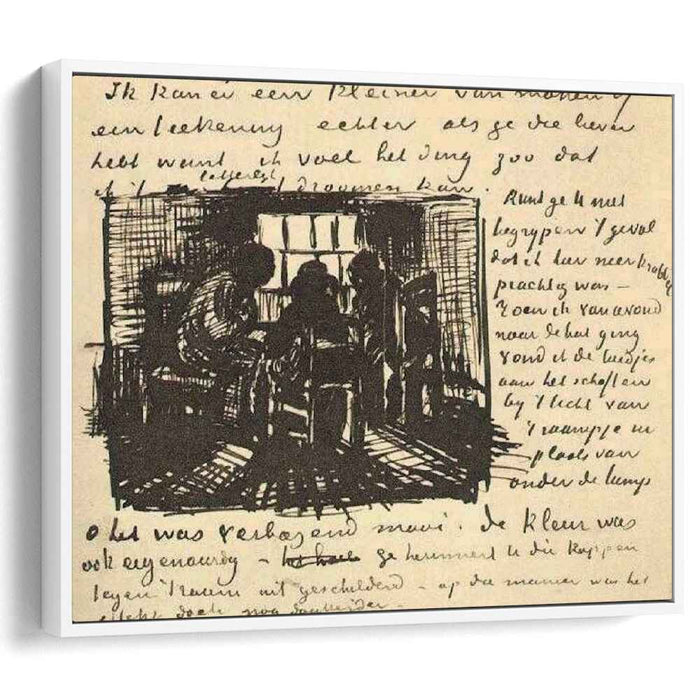 Ik kan er een kleiner van maken of
een teekening echter als ge die liever
hebt want ik voel het ding zoo dat
ik 't letterlijk droomen kan.
Kunt ge U niet
begrypen 't geval
dat ik hier neer krabbel
prachtig was –
Toen ik van avond
naar de hut ging
vond ik de luidjes
aan het schaften
by 't licht van
't raampje in
plaats van
onder de lamp
o het was verbazend mooi. De kleur was
ook eigenaardig – ge herinnert U die koppen
tegen 't raam uit geschilderd – op die manier was het
effekt doch nog donkerder –